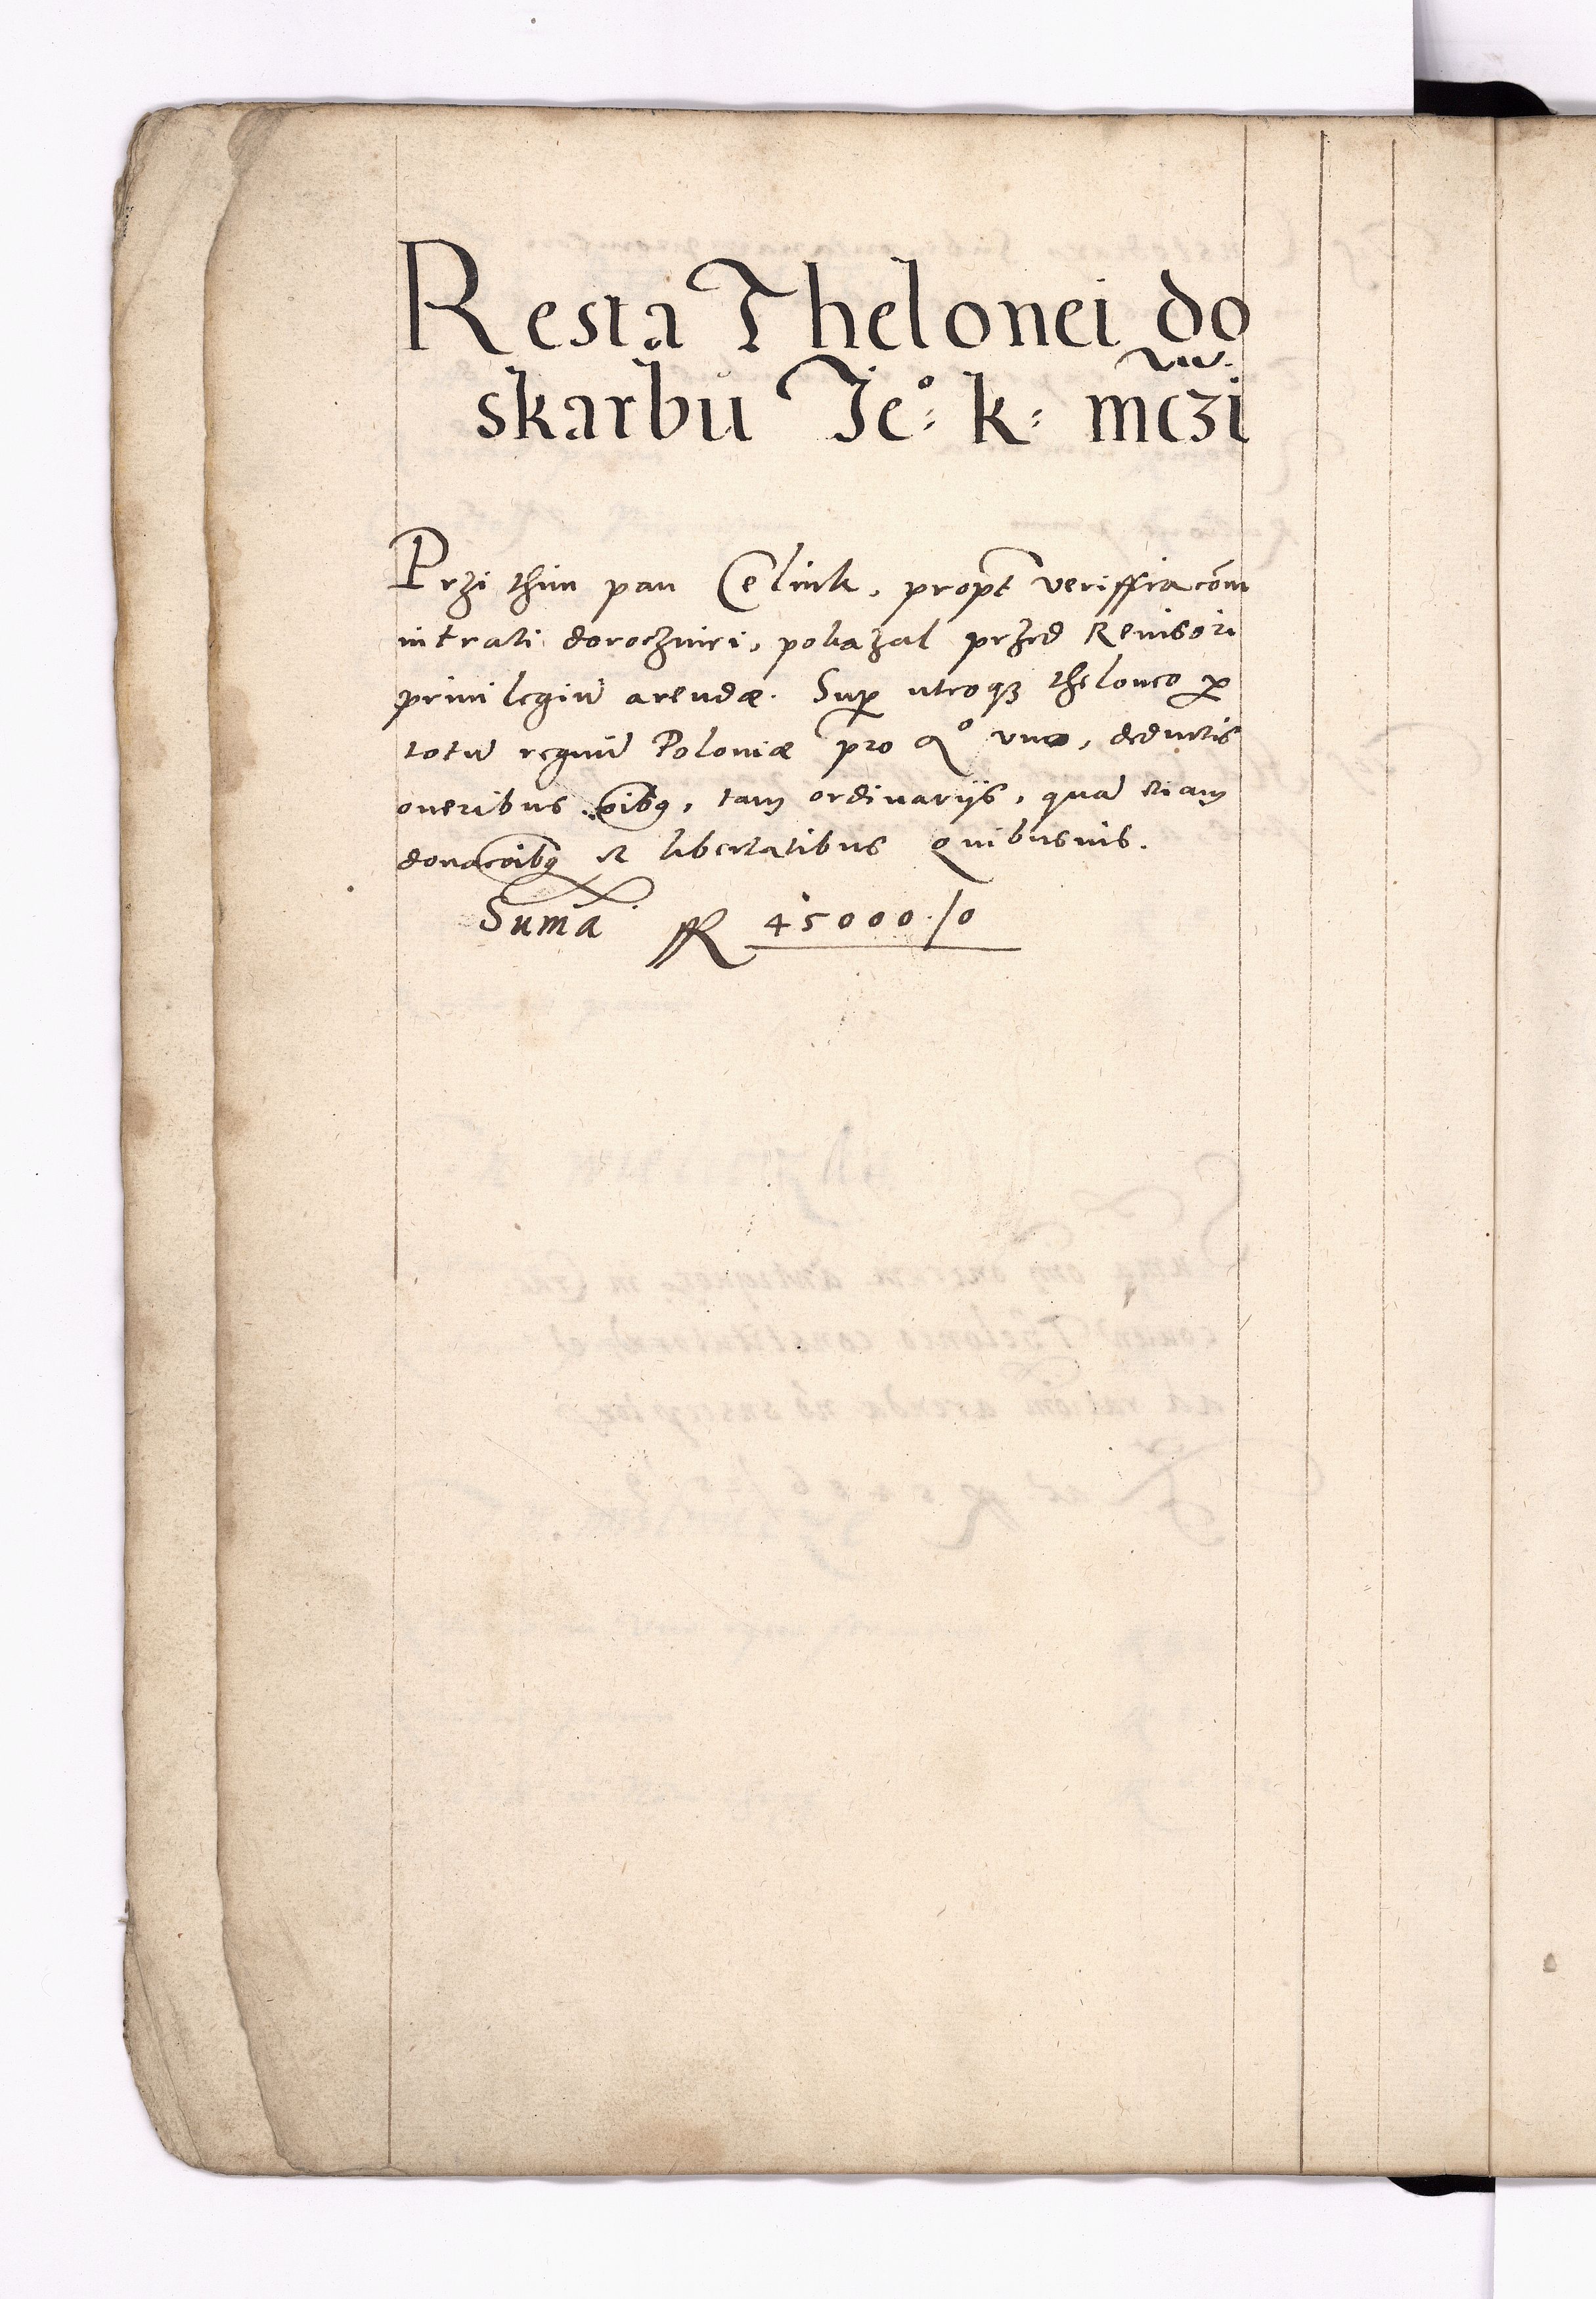 Resta Thelonei do
skarbu Je°: k: mczi
Przi thim pan Celink, propt veriffiacom
intrati doroczniei, pokazal przed Revisori
privilegiu arendæ. Sup utroq3 theloneo p
totu regnu Poloniæ pro Ao uno, deductis
oneribus oibq, tam ordinarijs, qua etiam
donacoibq et libertatibus quibusvis.
Suma fR 45000./0